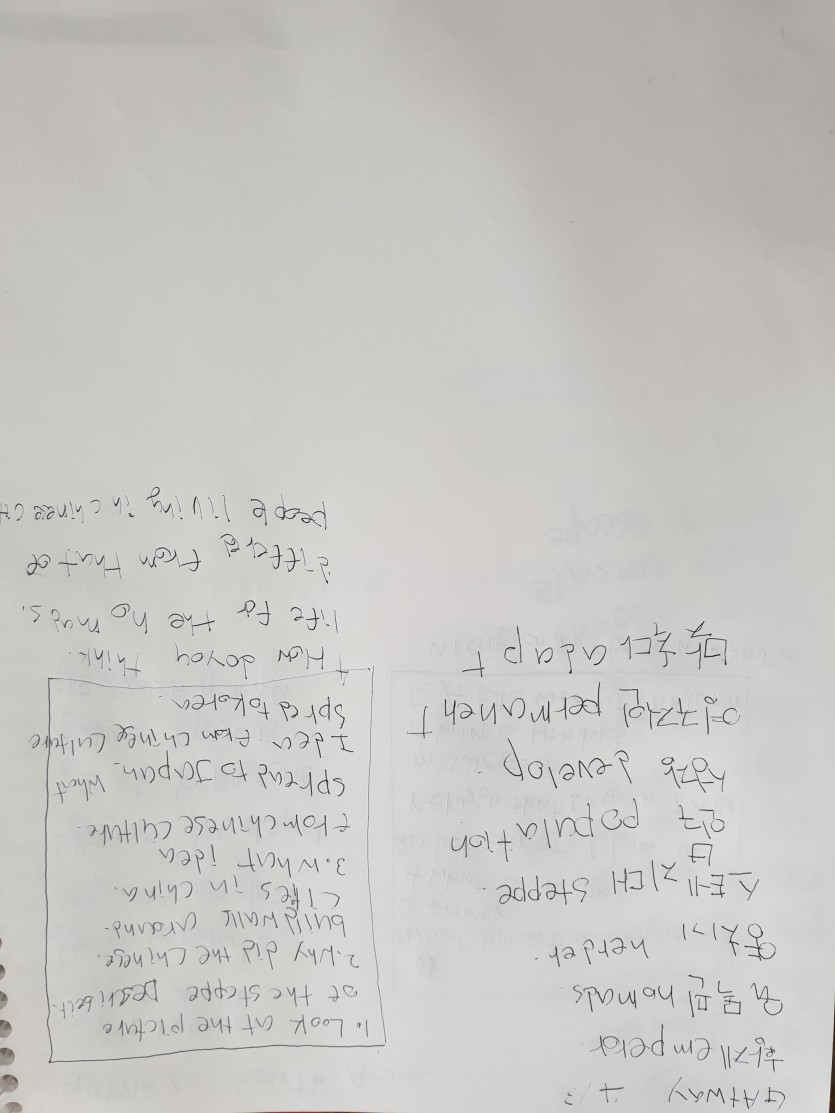 GATWAY
황제 emperor
유목민 nomads.
양치기 herder.
스텝 지대 steppe.
인구 popula
tion
develop.
영구적인 permanent
맞추다 adapt
1. Look at the picture
of the steppe Describe it.
2. Why did the Chinese.
build walls around.
cities in china.
3. What idea
from chinese culture.
spread to Japan. What
Idea from chinese culture
spred to korea.
How do you think.
life for the nomads.
differed from that of
people living in chinese